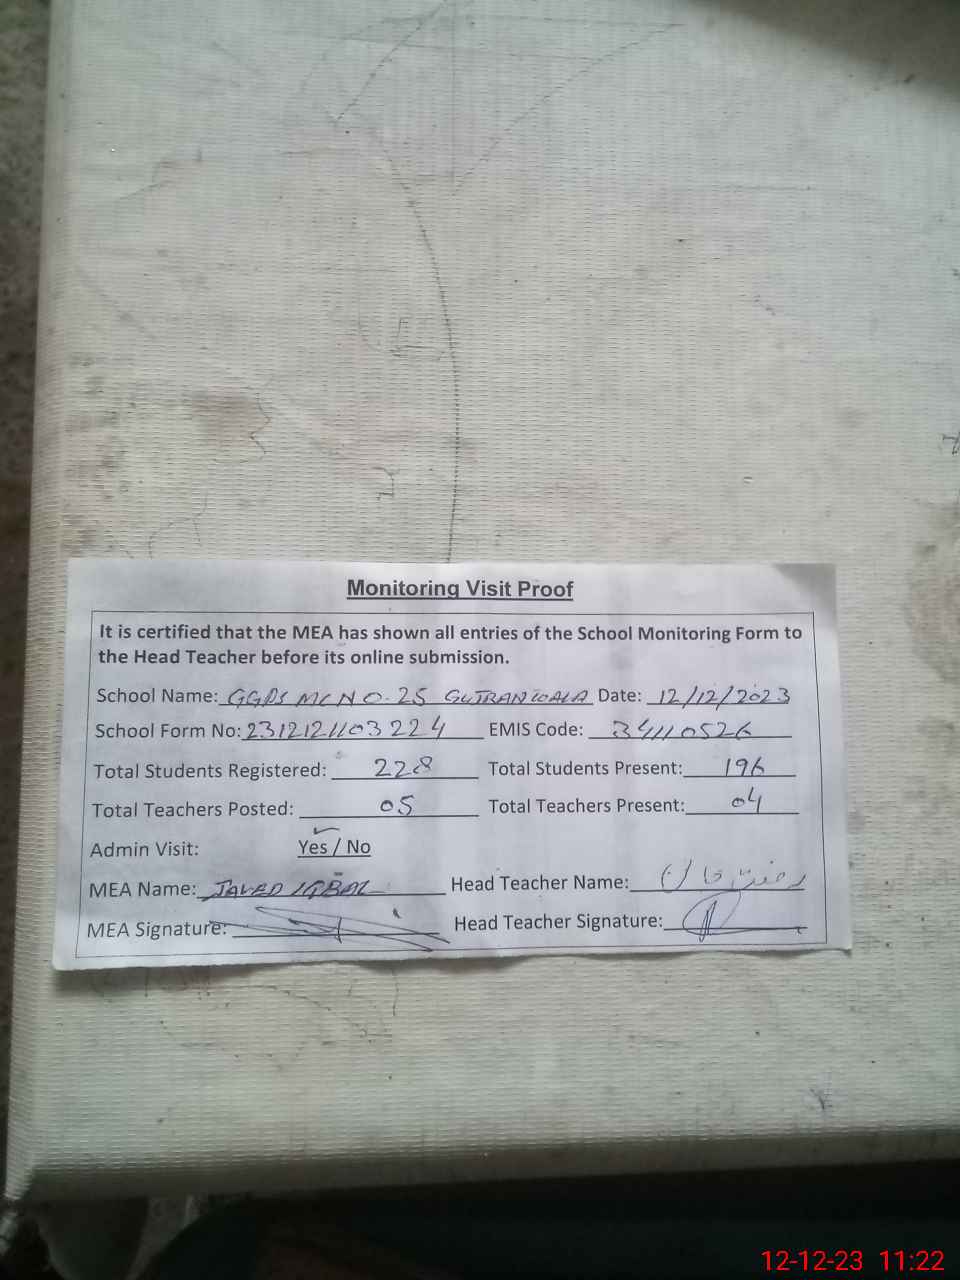 Monitoring Visit Proof
It is certified that the MEA has shown all entries of the School Monitoring Form to
the Head Teacher before its online submission.
School Name: GGPS MC NO. 25 GUJRANWALA Date: 12/12/2023
School Form No: 2312121103224 EMIS Code: 34110526
Total Students Registered: 228 Total Students Present: 196
Total Teachers Posted: 05 Total Teachers Present: 04
Admin Visit: Yes / No
MEA Name: JAVED IQBAL Head Teacher Name:
MEA Signature: Head Teacher Signature:
12-12-23 11:22